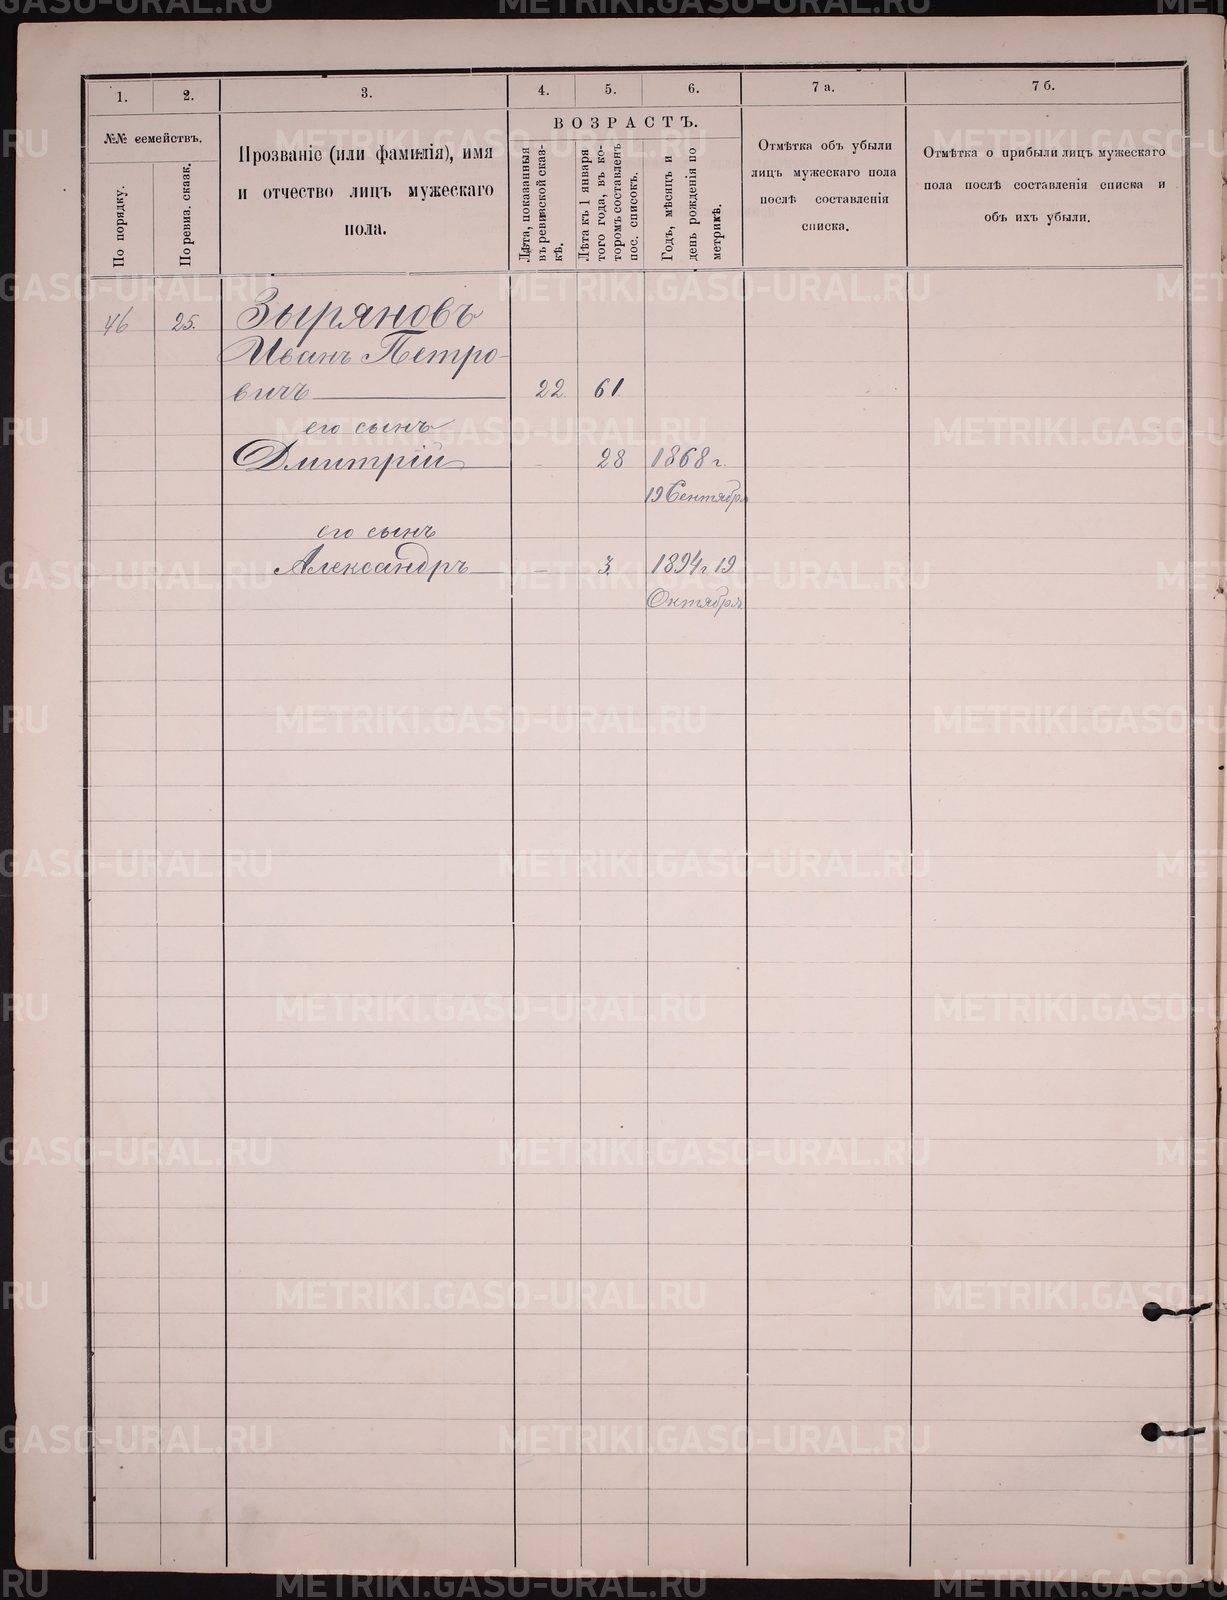 1.
2.
3.
4.
5.
6.
7 а.
7 б.
№№ семействъ.
По порядку.
По ревиз. сказк.
Прозваніе (или фамилія), имя
и отчество лицъ мужескаго
пола.
ВОЗРАСТЪ.
Лѣта, показанныя
въ ревизской сказ-
кѣ.
Лѣта къ 1 января
того года, въ ко-
торомъ составленъ
пос. списокъ.
Годъ, мѣсяцъ и
день рожденія по
метрикѣ.
Отмѣтка объ убыли
лицъ мужескаго пола
послѣ составленія
списка.
Отмѣтка о прибыли лицъ мужескаго
пола послѣ составленія списка и
объ ихъ убыли.
46 25. Зыряновъ
Иванъ Петро-
вичъ 22. 61.
его сынъ
Дмитрій - 28 1868 г.
19 Сентября
его сынъ
Александръ - 3. 1894 г 19
Октября
METRIKI.GASO-URAL.RU